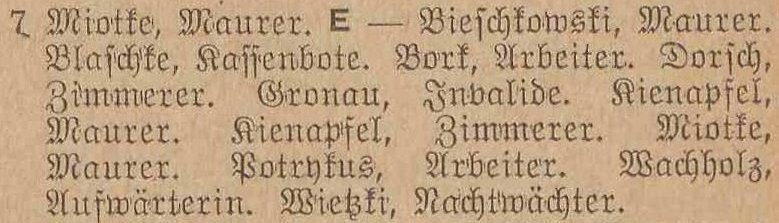 7 Miotke, Maurer. E — Bieschkowski, Maurer.
Blaschke, Kassenbote. Bork, Arbeiter. Dorsch,
Zimmerer. Gronau, Invalide. Kienapfel,
Maurer. Kienapfel, Zimmerer. Miotke,
Maurer. Potrykus, Arbeiter. Wachholz,
Aufwärterin. Wietzki, Nachtwächter.